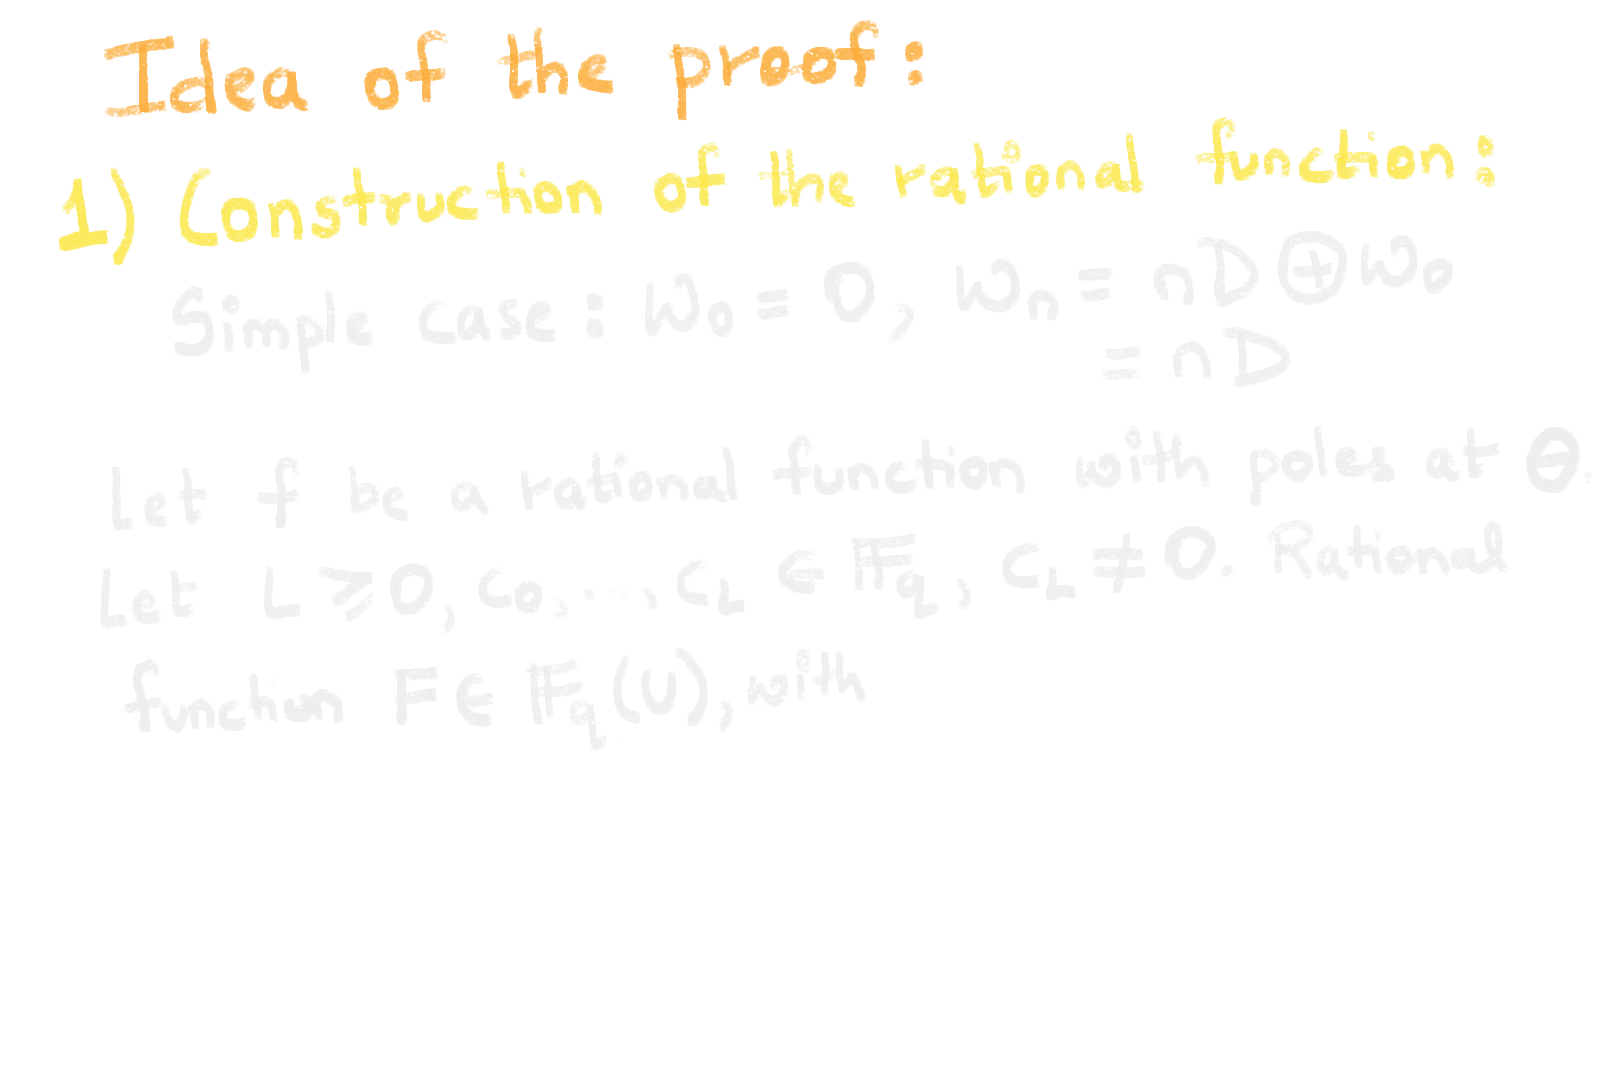 Idea of the proof:
1) Construction of the rational function:
Simple case: W₀ = 0, Wₙ = nD ⊕ W₀
= nD
Let f be a rational function with poles at Θ.
Let L ⩾ 0, c₀, ..., c_L ∈ 𝔽_q, c_L ≠ 0. Rational
function F ∈ 𝔽_q(U), with